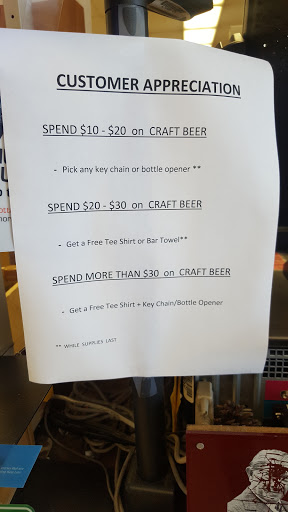 CUSTOMER APPRECIATION
SPEND $10 - $20 on CRAFT BEER
- Pick any key chain or bottle opener **
SPEND $20 - $30 on CRAFT BEER
- Get a Free Tee Shirt or Bar Towel**
SPEND MORE THAN $30 on CRAFT BEER
- Get a Free Tee Shirt + Key Chain/Bottle Opener
** WHILE SUPPLIES LAST